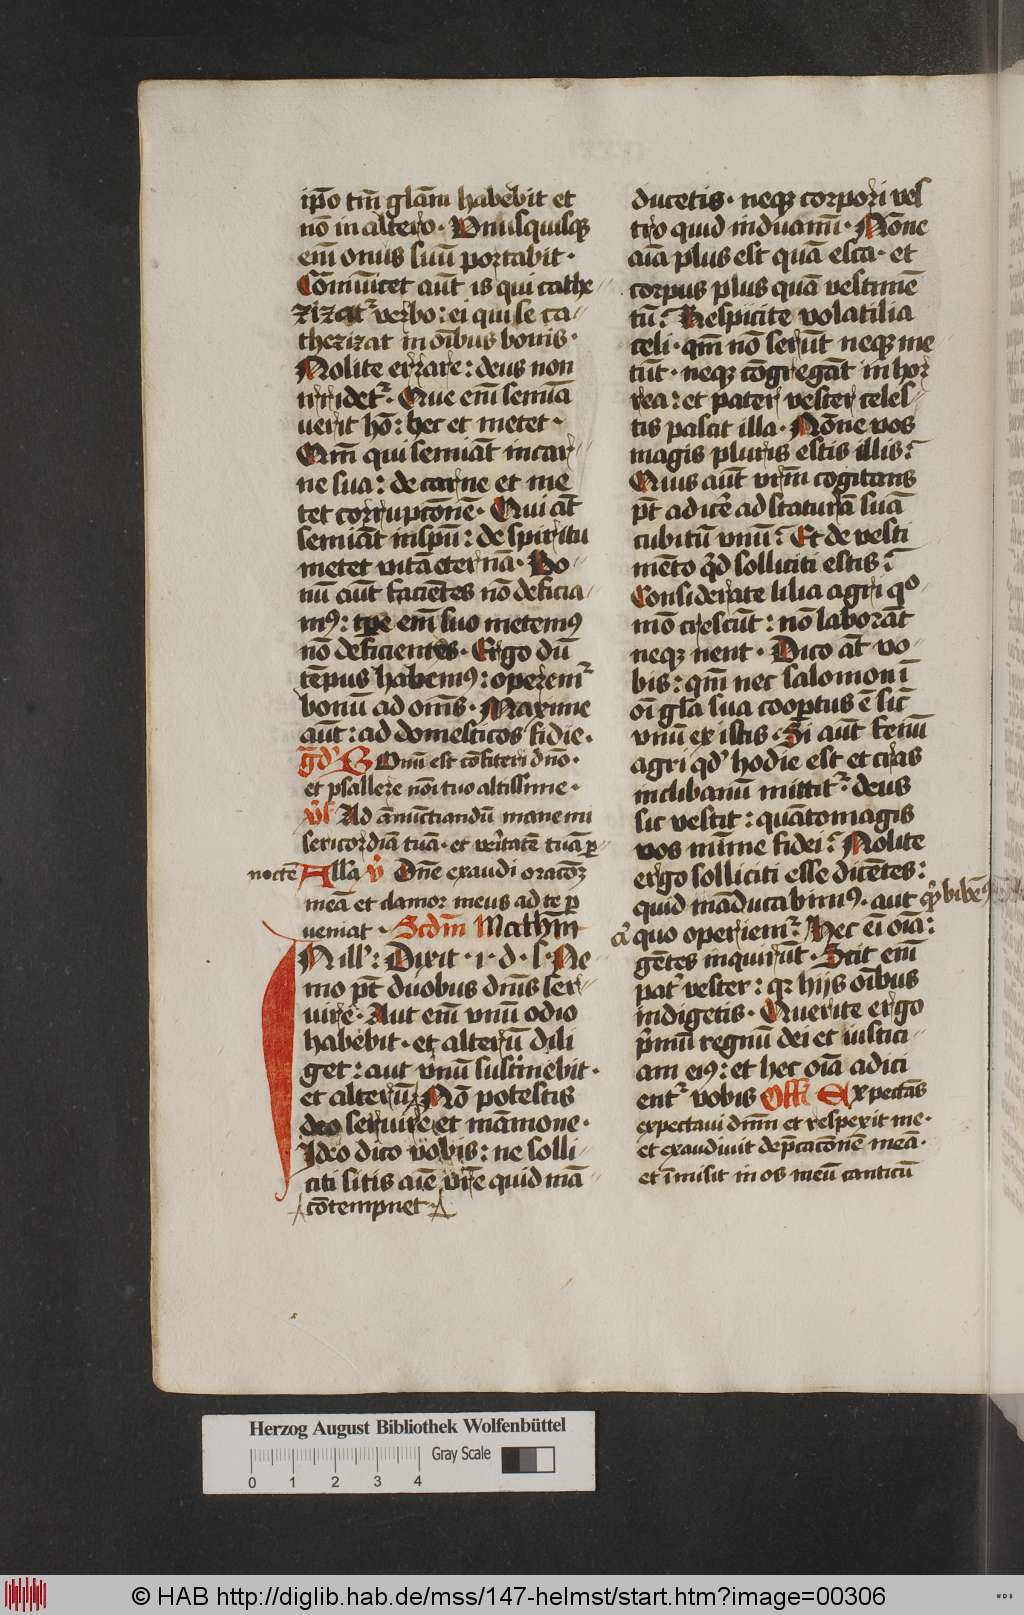 ip̄o tm̄ glām habebit et
nō in altero · Vnusquisqꝫ
em̄ onus suū portabit ·
Cōmūicet aūt is qui cathe
zizat᷑ verbo : ei qui se ca
thezizat in oībus bonis ·
Nolite errare : deus non
irridet᷑ · Que em̄ semīa
uerit hō : hec et metet ·
Qm̄ qui semīat in car
ne sua : de carne et me
tet corrupcōnē · Qui āt
semīat in sp̄u : de spiritu
metet vitā eternā · Bo
nū aūt facientes nō deficia
mꝰ : tp̄e em̄ suo metemꝰ
nō deficientes · Ergo dū
tēpus habemꝰ : operem᷑
bonū ad om̄s · Maxime
aūt : ad domesticos fidie ·
gͣd᷑ Bonū est cōfiteri dn̄o ·
et psallere nōi tuo altissime ·
v̄s Ad ānūctiandū mane mi
sericordiā tuā · et veritatē tuā ꝑ
noctē All'a v̓ Dn̄e exaudi oracōꝫ
meā et clamor meus ad te ꝑ
ueniat · Scdm̄ Mathm̄
IN ill' : Dixit · i · d · s · Ne
mo pt̄ duobus dn̄is ser
uire · Aut em̄ vnū odio
habebit · et alterū dili
get : aut vnū sustinebit ·
et alterū Nō potestis
deo seruire et māmone ·
Ideo dico vobis : ne solli
citi sitis aīe vr̄e quid mā
cōtempnet ·
ducetis · neqꝫ corpori ves
tro quid induam̄ · Nōne
aīa plus est quā esca · et
corpus plus quā vestimē
tū ? Respicite volatilia
celi · qm̄ nō serūt neqꝫ me
tūt · neqꝫ cōgregāt in hor
rea : et pater vester celes
tis pascit illa · Nōne vos
magis pluris estis illis ?
Quis aūt vr̄m cogitans
pt̄ adicē ad staturā suā
cubitū vnū ? Et de vesti
mēto qd̄ solliciti estis ?
Considerate lilia agri qͦ
mō crescūt : nō laborāt
neqꝫ nent · Dico āt vo
bis : qm̄ nec salomon ī
oī gl̄a sua coopertus ē sic̄
vnū ex istis · Si aūt fenū
agri qd̓ hodie est et cras
in clibanū mittit᷑ · deus
sic vestit : quāto magis
vos mīme fidei ? Nolite
ergo solliciti esse dicētes :
quid māducabimꝰ · aut qͥd bibēꝰ
aͭ quo operiem᷑ ? Hec ēi oīa :
gētes inquirūt · Scit em̄
pat᷑ vester : qꝛ hijs oībus
indigetis · Querite ergo
pͥmū regnū dei et iustici
am eiꝰ : et hec oīa adici
ent᷑ vobis Off̄ Expectās
expectaui dnm̄ et respexit me ·
et exaudiuit dep̄cacōnē meā ·
et īmisit in os meū canticū
Herzog August Bibliothek Wolfenbüttel
Gray Scale
0 1 2 3 4
© HAB http://diglib.hab.de/mss/147-helmst/start.htm?image=00306